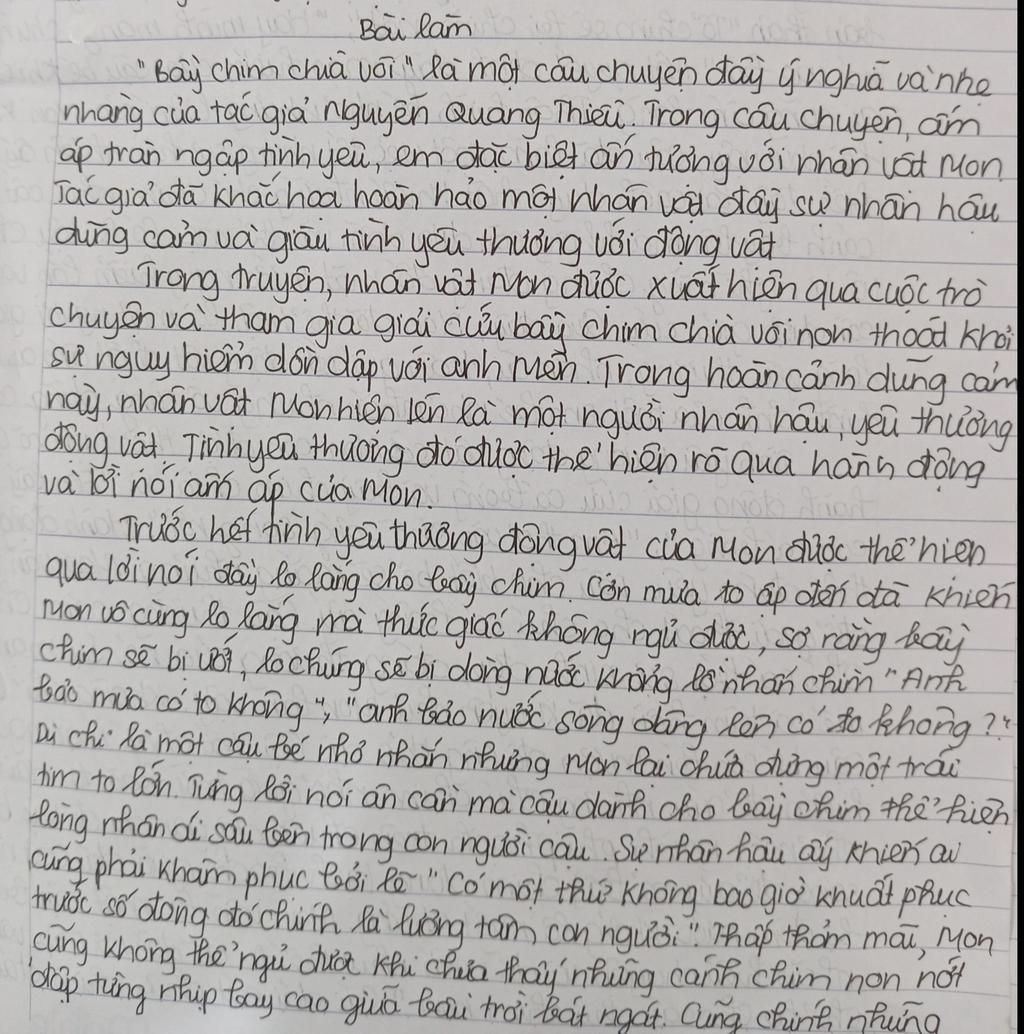 Bài làm
"Bầy chim chìa vôi" là một câu chuyện đầy ý nghĩa và nhẹ
nhàng của tác giả Nguyễn Quang Thiều. Trong câu chuyện, ấm
áp tràn ngập tình yêu, em đặc biệt ấn tượng với nhân vật Mon.
Tác giả đã khắc hoạ hoàn hảo một nhân vật đầy sự nhân hậu
dũng cảm và giàu tình yêu thương với động vật
Trong truyện, nhân vật Mon được xuất hiện qua cuộc trò
chuyện và tham gia giải cứu bầy chim chìa vôi non thoát khỏi
sự nguy hiểm dồn dập với anh Mên. Trong hoàn cảnh dũng cảm
này, nhân vật Mon hiện lên là một người nhân hậu, yêu thương
động vật Tình yêu thương đó được thể hiện rõ qua hành động
và lời nói ấm áp của Mon.
Trước hết tình yêu thương động vật của Mon được thể hiện
qua lời nói đầy lo lắng cho bầy chim. Cơn mưa to ập đến đã khiến
Mon vô cùng lo lắng mà thức giấc không ngủ được, sợ rằng bầy
chim sẽ bị ướt, lo chúng sẽ bị dòng nước khổng lồ nhấn chìm "Anh
bảo mưa có to không", "anh bảo nước sông dâng lên có to không?"
Dù chỉ là một cậu bé nhỏ nhắn nhưng Mon lại chứa đựng một trái
tim to lớn. Từng lời nói ân cần mà cậu dành cho bầy chim thể hiện
lòng nhân ái sâu bên trong con người cậu. Sự nhân hậu ấy khiến ai
cũng phải khâm phục bởi lẽ "Có một thứ không bao giờ khuất phục
trước số đông đó chính là lương tâm con người". Thấp thỏm mãi, Mon
cũng không thể ngủ được khi chưa thấy những cánh chim non nớt
đập từng nhịp bay cao giữa bầu trời bát ngát. Cũng chính những